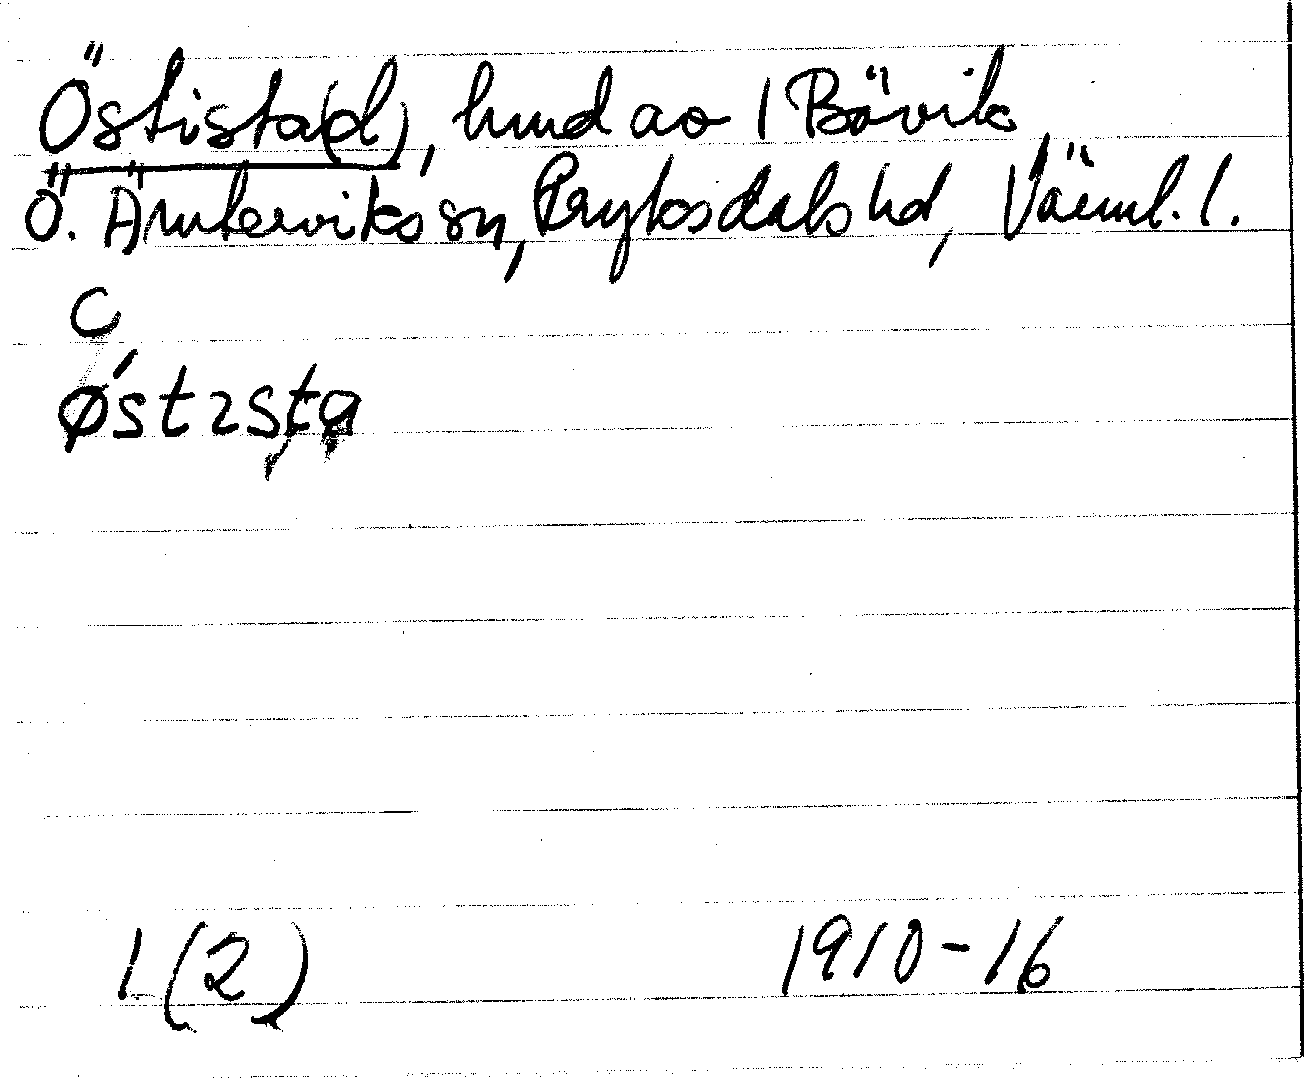 Östista(d), hmd ao 1 Bövik
Ö. Ämterviks sn, Fryksdals hd, Värml. l.
c
ǿstɪsta
1(2) 1910-16